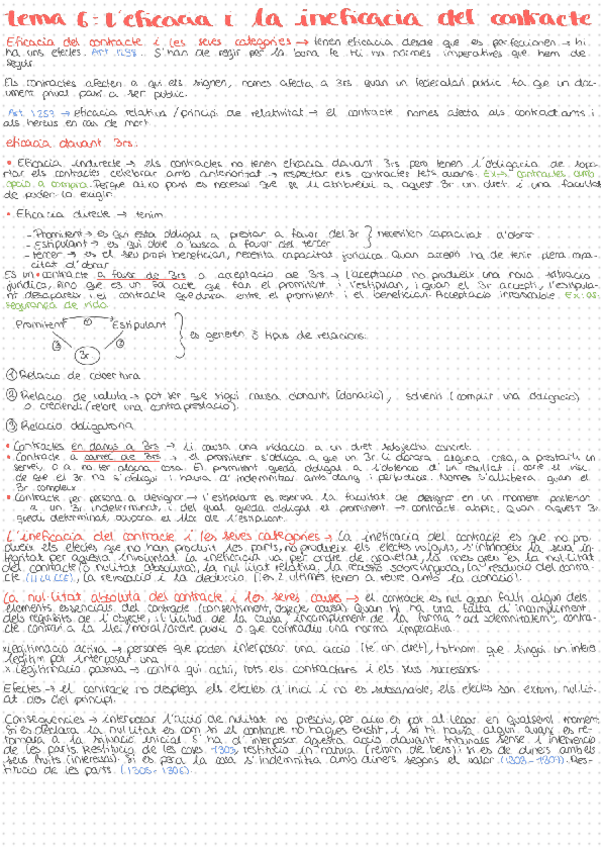 Tema 6: L'eficacia i la ineficacia del contracte
Eficacia del contracte i les seves categories → tenen eficacia desde que es perfeccionen → hi
ha uns efectes. Art 1258. S'han de regir per la bona fe hi ha normes imperatives que hem de
seguir.
Els contractes afecten a qui els signen, nomes afecta a 3rs quan un federatari public fa que un doc-
ument privat passi a ser public.
Art. 1257 → eficacia relativa / principi de relativitat → el contracte nomes afecta als contractants i
als hereus en cas de mort.
eficacia davant 3rs:
• Eficacia indirecte → els contractes no tenen eficacia davant 3rs pero tenen l'obligacio de sopo-
rtar els contractes celebrar amb anterioritat → respectar els contractes fets avans. Ex → contractes amb
opcio a compra. Perque aixo passi es necesari que se li atribueixi a aquest 3r un dret i una facultat
de poder-lo exigir.
• Eficacia directe → tenim:
- Promitent → es qui esta obligat a prestar a favor del 3r
- Estipulant → es qui obre o busca a favor del tercer
} necesiten capacitat d'obrar
- Tercer → es el seu propi beneficiari, necesita capacitat juridica. Quan accepti ha de tenir plena capa-
citat d'obrar.
Es un contracte a favor de 3rs o acceptacio de 3rs → l'acceptacio no produeix una nova situacio
juridica, sino que es un sol acte que fan el promitent i l'estipulant, i quan el 3r accepti, l'estipula-
nt desapareix i el contracte quedara entre el promitent i el beneficiari. Acceptacio irrevocable. Ex: as-
segurança de vida.
Promitent ① Estipulant
② 3r ③
} es generen 3 tipus de relacions.
① Relacio de cobertura
② Relacio de valuta → pot ser que sigui causa donants (donacio), solvens (complir una obligacio)
o credendi (rebre una contraprestacio).
③ Relacio obligatoria
• Contractes en danys a 3rs → li causa una violacio a un dret subjectiu concret.
• Contracte a carrec de 3rs → el promitent s'obliga a que un 3r li donara alguna cosa, a prestarli un
servei, o a no fer alguna cosa. El promitent queda obligat a l'obtencio d'un resultat i corre el risc
de que el 3r no s'obligui i haura d'indemnitzar amb danys i perjudicis. Nomes s'allibera quan el
3r compleix
• Contracte per persona a designar → l'estipulant es reserva la facultat de designar en un moment posterior
a un 3r indeterminat, i del qual queda obligat el promitent → contracte atipic. Quan aquest 3r
quedi determinat, ocupara el lloc de l'estipulant.
L'ineficacia del contracte i les seves categories → la ineficacia del contracte es que no pro-
dueix els efectes que no han produit les parts, no produeix els efectes volguts, s'infringeix la seva in-
tegritat per aquesta involuntat. La ineficacia va per ordre de gravetat, la mes greu es la nul·litat
del contracte (o nulitat absoluta), la nul·litat relativa, la resolucio sobrevinguda, la resolucio del contra-
cte (1124 CC), la revocacio i la (les 2 ultimes tenen a veure amb la donacio).
La nul·litat absoluta del contracte i les seves causes → el contracte es nul quan falti algun dels
elements essencials del contracte (consentiment, objecte, causa). Quan hi ha una falta d'incompliment
dels requisits de l'objecte, il·licitud de la causa, incompliment de la forma "ad solemnitatem", contra-
cte contrari a la llei/moral/ordre public o que contradiu una norma imperativa.
× Legitimacio activa → persones que poden interposar una accio (te un dret), tothom que tingui un interes
legitim pot interposar una.
× Legitimacio passiva → contra qui actui, tots els contractants i els seus successors.
Efectes → el contracte no desplega els efectes d'inici i no es subsanable, els efectes son extunc, nul·lit-
at des del principi.
Consequencies → interposar l'accio de nulitat no prescriu, per aixo es pot al·legar en qualsevol moment.
Si es declara la nul·litat es com si el contracte no hagues existit, i si hi havia algun avanç es re-
tornara a la situacio inicial. S'ha d'interposar aquesta accio davant tribunals sense l'intervencio
de les parts. Restitucio de les coses. 1303, restitucio in natura (retorn de bens): si es de diners amb els
seus fruits (interessos). Si es perd la cosa s'indemnitza amb diners segons el valor (1303-1307). Res-
titucio de les parts. (1305-1306).